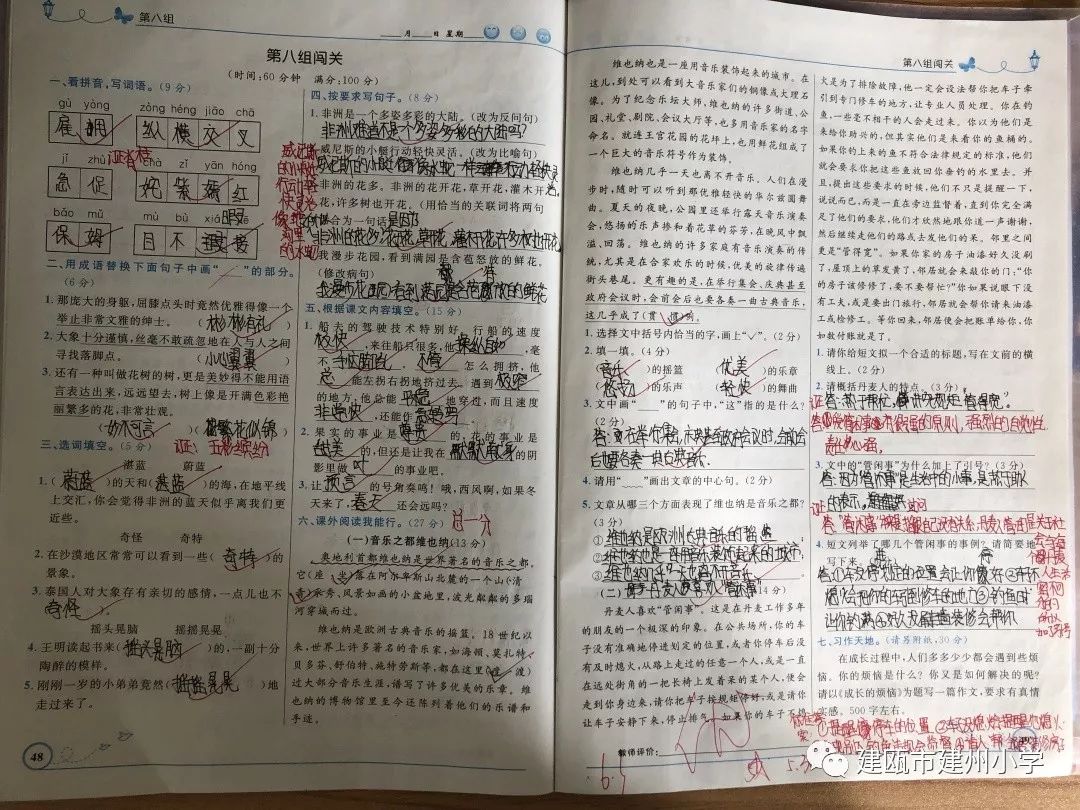 第八组
月 日 星期
第八组闯关
(时间:60分钟 满分:100分)
一、看拼音,写词语。(9分)
gù yòng zòng héng jiāo chā
雇 佣 纵 横 交 叉
jí zhù chà zǐ yān hóng
急 促 姹 紫 嫣 红
bǎo mǔ mù bù xiá
保 姆 目 不 暇 接
二、用成语替换下面句子中画“ ”的部分。
(6分)
1. 那庞大的身躯,屈膝点头时竟然优雅得像一个
举止非常文雅的绅士。(彬彬有礼)
2. 大象十分谨慎,丝毫不敢疏忽地在人与人之间
寻找落脚点。(小心翼翼)
3. 还有一种叫做花树的树,更是美妙得不能用语
言表达出来,远远望去,树上像是开满色彩艳
丽繁多的花,非常壮观。
(妙不可言)(繁花似锦)
三、选词填空。(5分)
湛蓝 蔚蓝
1. (蔚蓝)的天和(湛蓝)的海,在地平线
上交汇,你会觉得非洲的蓝天似乎离我们更
近些。
奇怪 奇特
2. 在沙漠地区常常可以看到一些(奇特)的
景象。
3. 泰国人对大象存有亲切的感情,一点儿也不
(奇怪)。
摇头晃脑 摇摇晃晃
4. 王明读起书来(摇头晃脑)的,一副十分
陶醉的模样。
5. 刚刚一岁的小弟弟竟然(摇摇晃晃)地
走过来了。
48
四、按要求写句子。(8分)
1. 非洲是一个多姿多彩的大陆。(改为反问句)
非洲难道不是一个多姿多彩的大陆吗?
威尼斯的小艇行动轻快灵活。(改为比喻句)
非洲的花多。非洲的花开花,草开花,灌木开
花,许多树也开花。(用恰当的关联词将两句
合为一句话)
我漫步花园,看到满园是含苞怒放的鲜花。
(修改病句)
五、根据课文内容填空。(15分)
1. 船夫的驾驶技术特别好。行船的速度
极快,来往船只很多,他操纵自如,毫
不手忙脚乱。不管怎么拥挤,他
总能左拐右拐地挤过去。遇到极窄
的地方,他总能平稳地穿过,而且速度
非常快,还能作急转弯
2. 果实的事业是尊贵的,花的事业是
甜美的,但还是让我在默默献身的阴
影里做叶的事业吧。
3. 让预言的号角奏鸣!哦,西风啊,如果冬
天来了,春天还会远吗?
六、课外阅读我能行。(27分)
(一)音乐之都维也纳(13分)
奥地利首都维也纳是世界著名的音乐之都。
它(座 坐)落在阿尔卑斯山北麓的一个山(清
青)水秀、风景如画的小盆地里,波光粼粼的多瑙
河穿城而过。
维也纳是欧洲古典音乐的摇篮。18世纪以
来,世界上许多著名的音乐家,如海顿、莫扎特、
贝多芬、舒伯特、施特劳斯等,都在这里(度 渡)
过大部分音乐生涯,谱写了许多优美的乐章。维
也纳的博物馆里至今还陈列着他们的乐谱和
手迹。
维也纳也是一座用音乐装饰起来的城市。在
这儿,到处可以看到大音乐家们的铜像或大理石
像。为了纪念乐坛大师,维也纳的许多街道、公
园、礼堂、剧院、会议大厅等,也多用音乐家的名字
命名。就连王宫花园的花坪上,也用鲜花组成了
一个巨大的音乐符号作装饰。
维也纳几乎一天也离不开音乐。人们在漫
步时,随时可以听到那优雅轻快的华尔兹圆舞
曲。夏天的夜晚,公园里还举行露天音乐演奏
会,悠扬的乐声掺和着花草的芬芳,在晚风中飘
溢、回荡。维也纳的许多家庭有音乐演奏的传
统,尤其是在合家欢乐的时候,优美的旋律传遍
街头巷尾。更有趣的是,在举行集会、庆典甚至
政府会议时,会前会后也要各奏一曲古典音乐,
这几乎成了(贯 惯)例。
1. 选择文中括号内恰当的字,画上“√”。(2分)
2. 填一填。(4分)
(音乐)的摇篮 (优美)的乐章
(悠扬)的乐声 (轻快)的舞曲
3. 文中画“ ”的句子中,“这”指的是什么?
(2分)
4. 请用“ ”画出文章的中心句。(2分)
5. 文章从哪三个方面表现了维也纳是音乐之都?
(3分)
①维也纳是欧洲古典音乐的摇篮
②维也纳也是一座用音乐装饰起来的城市
(14分)
丹麦人喜欢“管闲事”。这是在丹麦工作多年
的朋友的一个极深的印象。在公共场所,你的车
子没有准确地停进划定的位置,或者你停车后没
有及时熄火,从路上走过的任意一个人,或是一直
在远处街角的一把长椅上发着呆的某个人,便会
走到你身边来,请你把车子按规矩停好,或是请你
让车子安静下来,停止排气。如果你的车子不熄
教师评价:
第八组闯关
火是为了排除故障,他一定会设法帮你把车子牵
引到专门修车的地方,让专业人员处理。你在钓
鱼,一些毫不相干的人会走过来。你以为他们是
来给你助兴的,但其实他们是来看你的鱼桶的。
如果你钓上来的鱼不符合法律规定的标准,他们
就会要求你把这些鱼放回你垂钓的水里去。并
且,提出这些要求的时候,他们不只是提醒一下,
说说而已,而是一直在旁边监督着,直到你完全满
足了他们的要求,他们才欣然地跟你道一声谢谢,
然后继续走他们的路或去发他们的呆。邻里之间
更是“管得宽”。如果你家的房子油漆好久没刷
了,屋顶上的草发黄了,邻居就会来敲你的门:“你
的房子该修修了,要不要帮忙?”你如果说眼下没
有工夫,或是要出门旅行,邻居就会帮你请来油漆
工或检修工。等你回来,邻居便会把账单给你,你
如数付账就是了。
1. 请你给短文拟一个合适的标题,写在文前的横
线上。(2分)
2. 请概括丹麦人的特点。(3分)
3. 文中的“管闲事”为什么加上了引号?(3分)
4. 短文列举了哪几个管闲事的事例?请简要地
写下来。
七、习作天地。(请另附纸,30分)
在成长过程中,人们多多少少都会遇到些烦
恼。你的烦恼是什么?你又是如何解决的呢?
请以《成长的烦恼》为题写一篇作文,要求有真情
实感。500字左右。
建瓯市建州小学